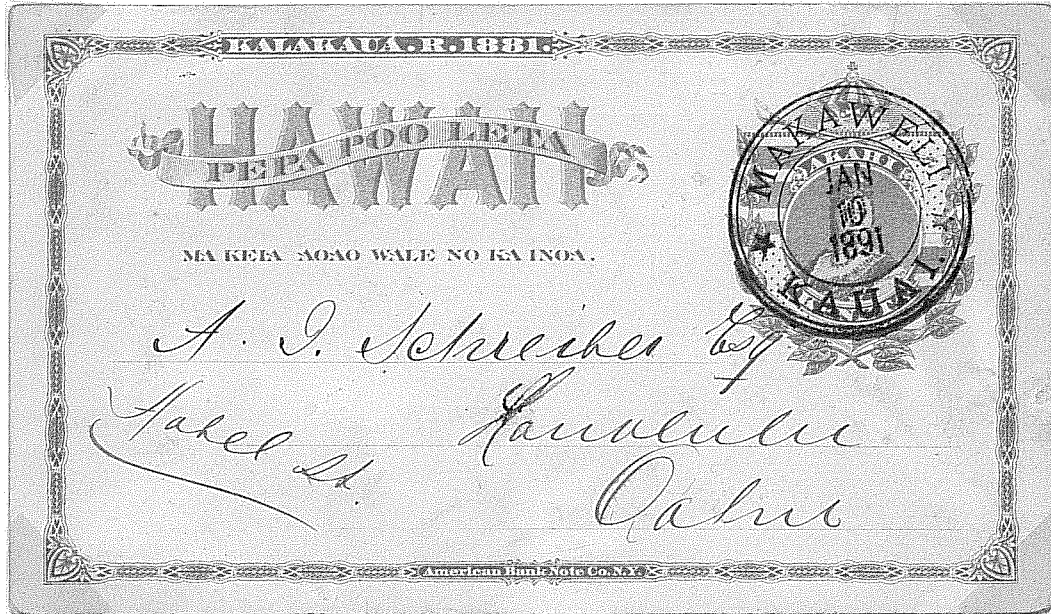 KALAKAUA.R.1881.
HAWAII
PEPA POO LETA
MA KEIA AOAO WALE NO KA INOA.
MAKAWELI
AKAHI
JAN
10
1891
KAUAI.
A. J. Schreiber Esq
Honolulu
Hotel St.
Oahu
American Bank Note Co. N.Y.